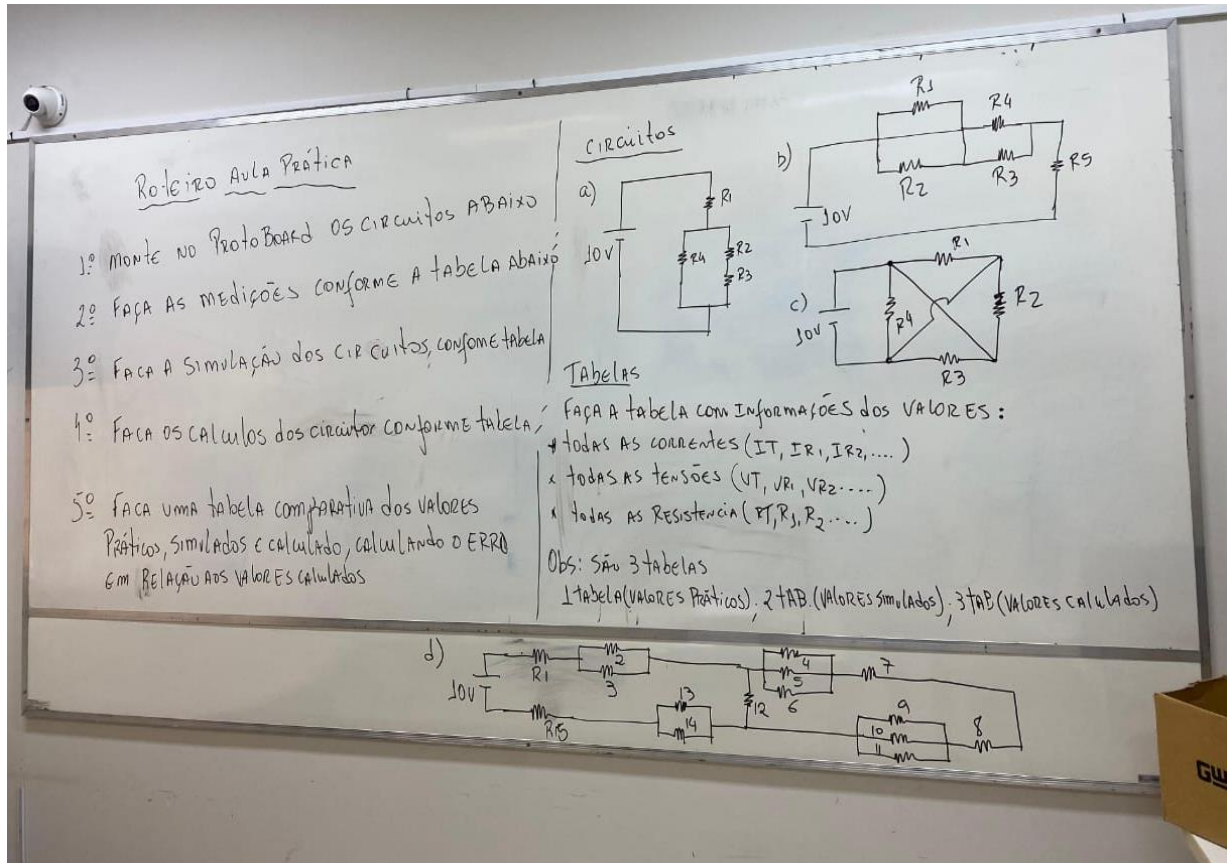 Roteiro Aula Prática
1º Monte no ProtoBoard os circuitos ABaixo
2º Faça as medições conforme a tabela Abaixo
3º Faca a simulação dos circuitos, confome tabela
4º Faca os calculos dos circuitor conforme tabela
5º Faca uma tabela comparativa dos valores
Práticos, simulados e calculado, calculando o erro
em relação aos valores calculados
Circuitos
a)
10V
R1
R4
R2
R3
b)
10V
R1
R2
R4
R3
R5
c)
10V
R1
R4
R2
R3
Tabelas
Faça a tabela com Informações dos valores:
* todas as correntes (IT, IR1, IR2, ....)
* todas as tensões (VT, VR1, VR2....)
* todas as Resistencia (RT, R1, R2....)
Obs: São 3 tabelas
1 tabela (valores Práticos). 2 tAB. (valores simulados); 3 tAB (valores calculados)
d)
10V
R1
2
3
4
5
6
7
8
9
10
11
12
13
14
R15
GW